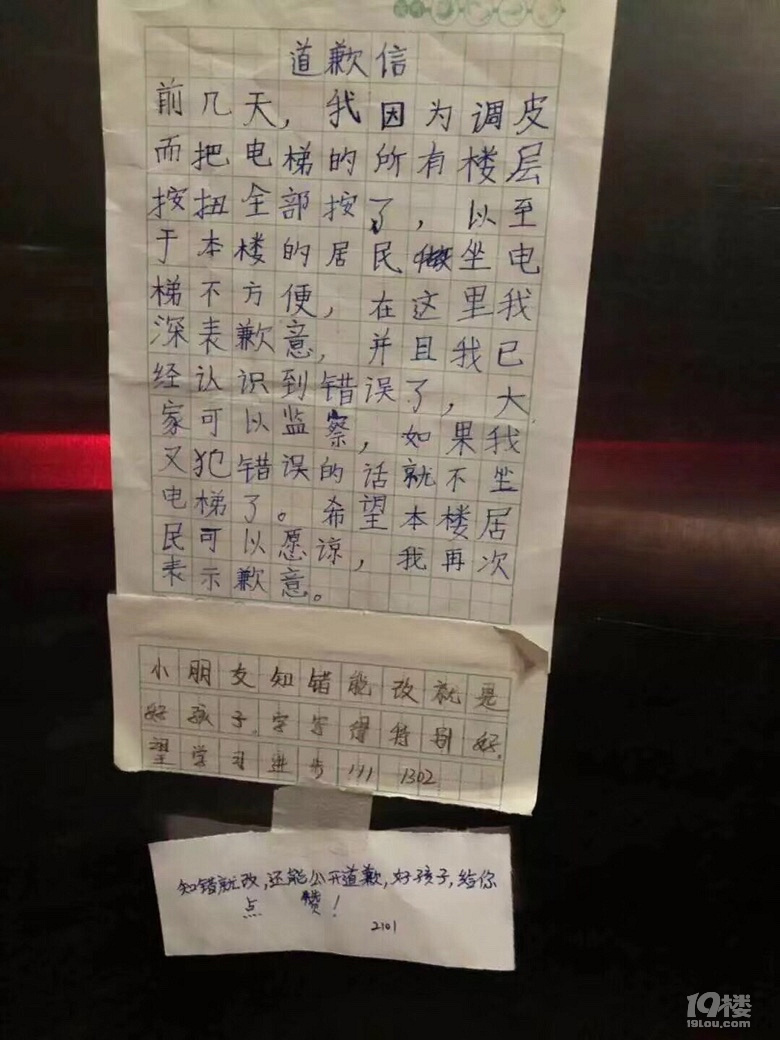 道歉信
前几天，我因为调皮
而把电梯的所有楼层
按扭全部按了，以至
于本楼的居民坐电
梯不方便，在这里我
深表歉意，并且我已
经认识到错误了，大
家可以监察，如果我
又犯错误的话就不坐
电梯了。希望本楼居
民可以愿谅，我再次
表示歉意。
小朋友知错能改就是
好孩子，字写得特别好，
望学习进步!!! 1302
知错就改，还能公开道歉，好孩子，给你
点赞！
2101
19楼
19lou.com